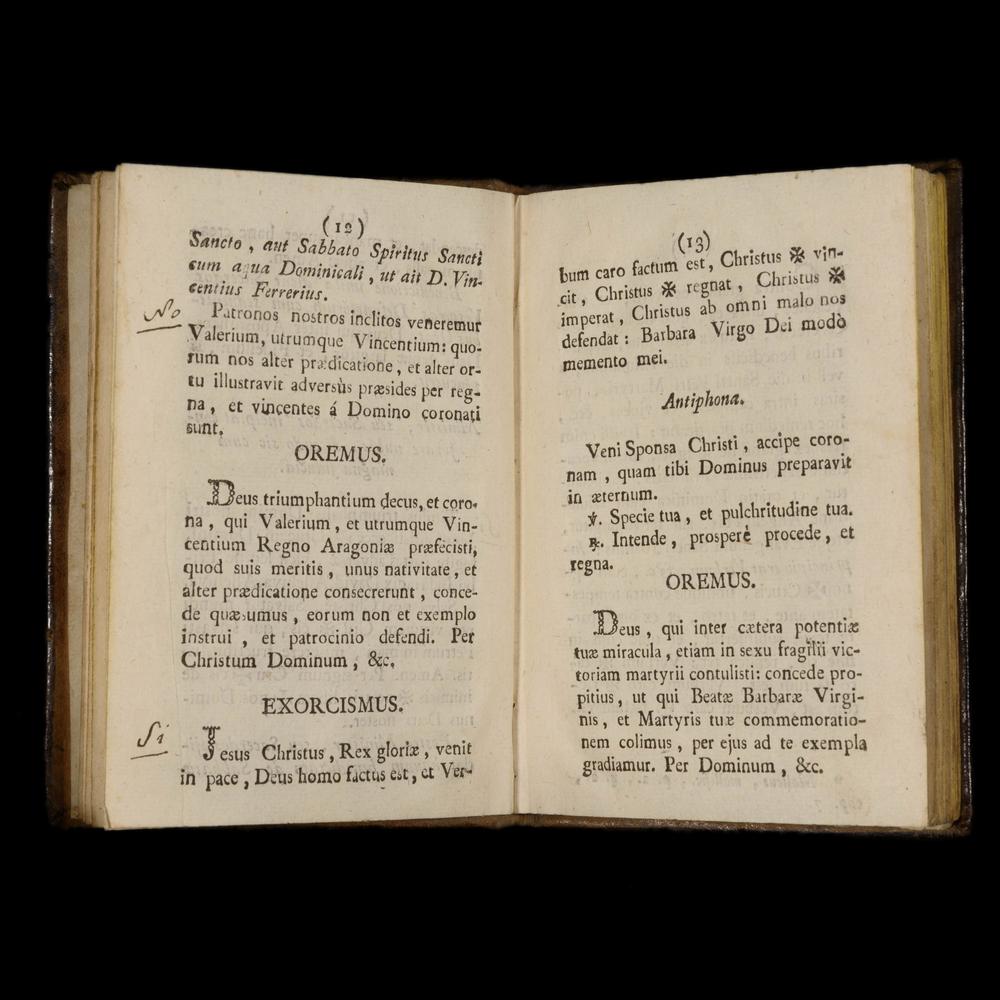 (12)
Sancto, aut Sabbato Spiritus Sancti
cum aqua Dominicali, ut ait D. Vin-
centius Ferrerius.
No
Patronos nostros inclitos veneremur
Valerium, utrumque Vincentium: quo-
rum nos alter prædicatione, et alter or-
tu illustravit adversùs præsides per reg-
na, et vincentes á Domino coronati
sunt.
OREMUS.
Deus triumphantium decus, et coro-
na, qui Valerium, et utrumque Vin-
centium Regno Aragoniæ præfecisti,
quod suis meritis, unus nativitate, et
alter prædicatione consecrerunt, conce-
de quæsumus, eorum non et exemplo
instrui, et patrocinio defendi. Per
Christum Dominum, &c.
EXORCISMUS.
Si
Jesus Christus, Rex gloriæ, venit
in pace, Deus homo factus est, et Ver-
(13)
bum caro factum est, Christus ✠ vin-
cit, Christus ✠ regnat, Christus ✠
imperat, Christus ab omni malo nos
defendat: Barbara Virgo Dei modò
memento mei.
Antiphona.
Veni Sponsa Christi, accipe coro-
nam, quam tibi Dominus preparavit
in æternum.
℣. Specie tua, et pulchritudine tua.
℟. Intende, prosperè procede, et
regna.
OREMUS.
Deus, qui inter cætera potentiæ
tuæ miracula, etiam in sexu fragilii vic-
toriam martyrii contulisti: concede pro-
pitius, ut qui Beatæ Barbaræ Virgi-
nis, et Martyris tuæ commemoratio-
nem colimus, per ejus ad te exempla
gradiamur. Per Dominum, &c.